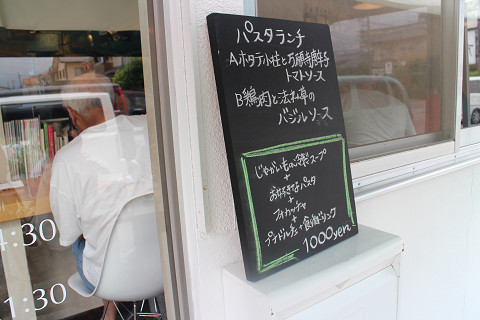 パスタランチ
Aホタテ小柱と万願寺唐辛子
トマトソース
B鶏肉と法蓮草の
バジルソース
じゃがいもの冷製スープ
+
お好きなパスタ
+
フォカッチャ
+
プチドルチェ+食後ドリンク
1000yen
4:30
1:30